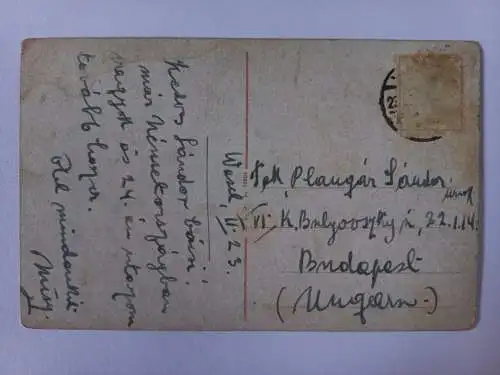 Kedves Sándor bácsi!
már Németországban
vagyok és 24.-én utazom
tovább haza.
mindenkit
Wesel, II. 23.
Tek. Plangár Sándor
úrnak
VI. K. Bulyovszky u. 22. I. 14.
Budapest
(Ungarn.)